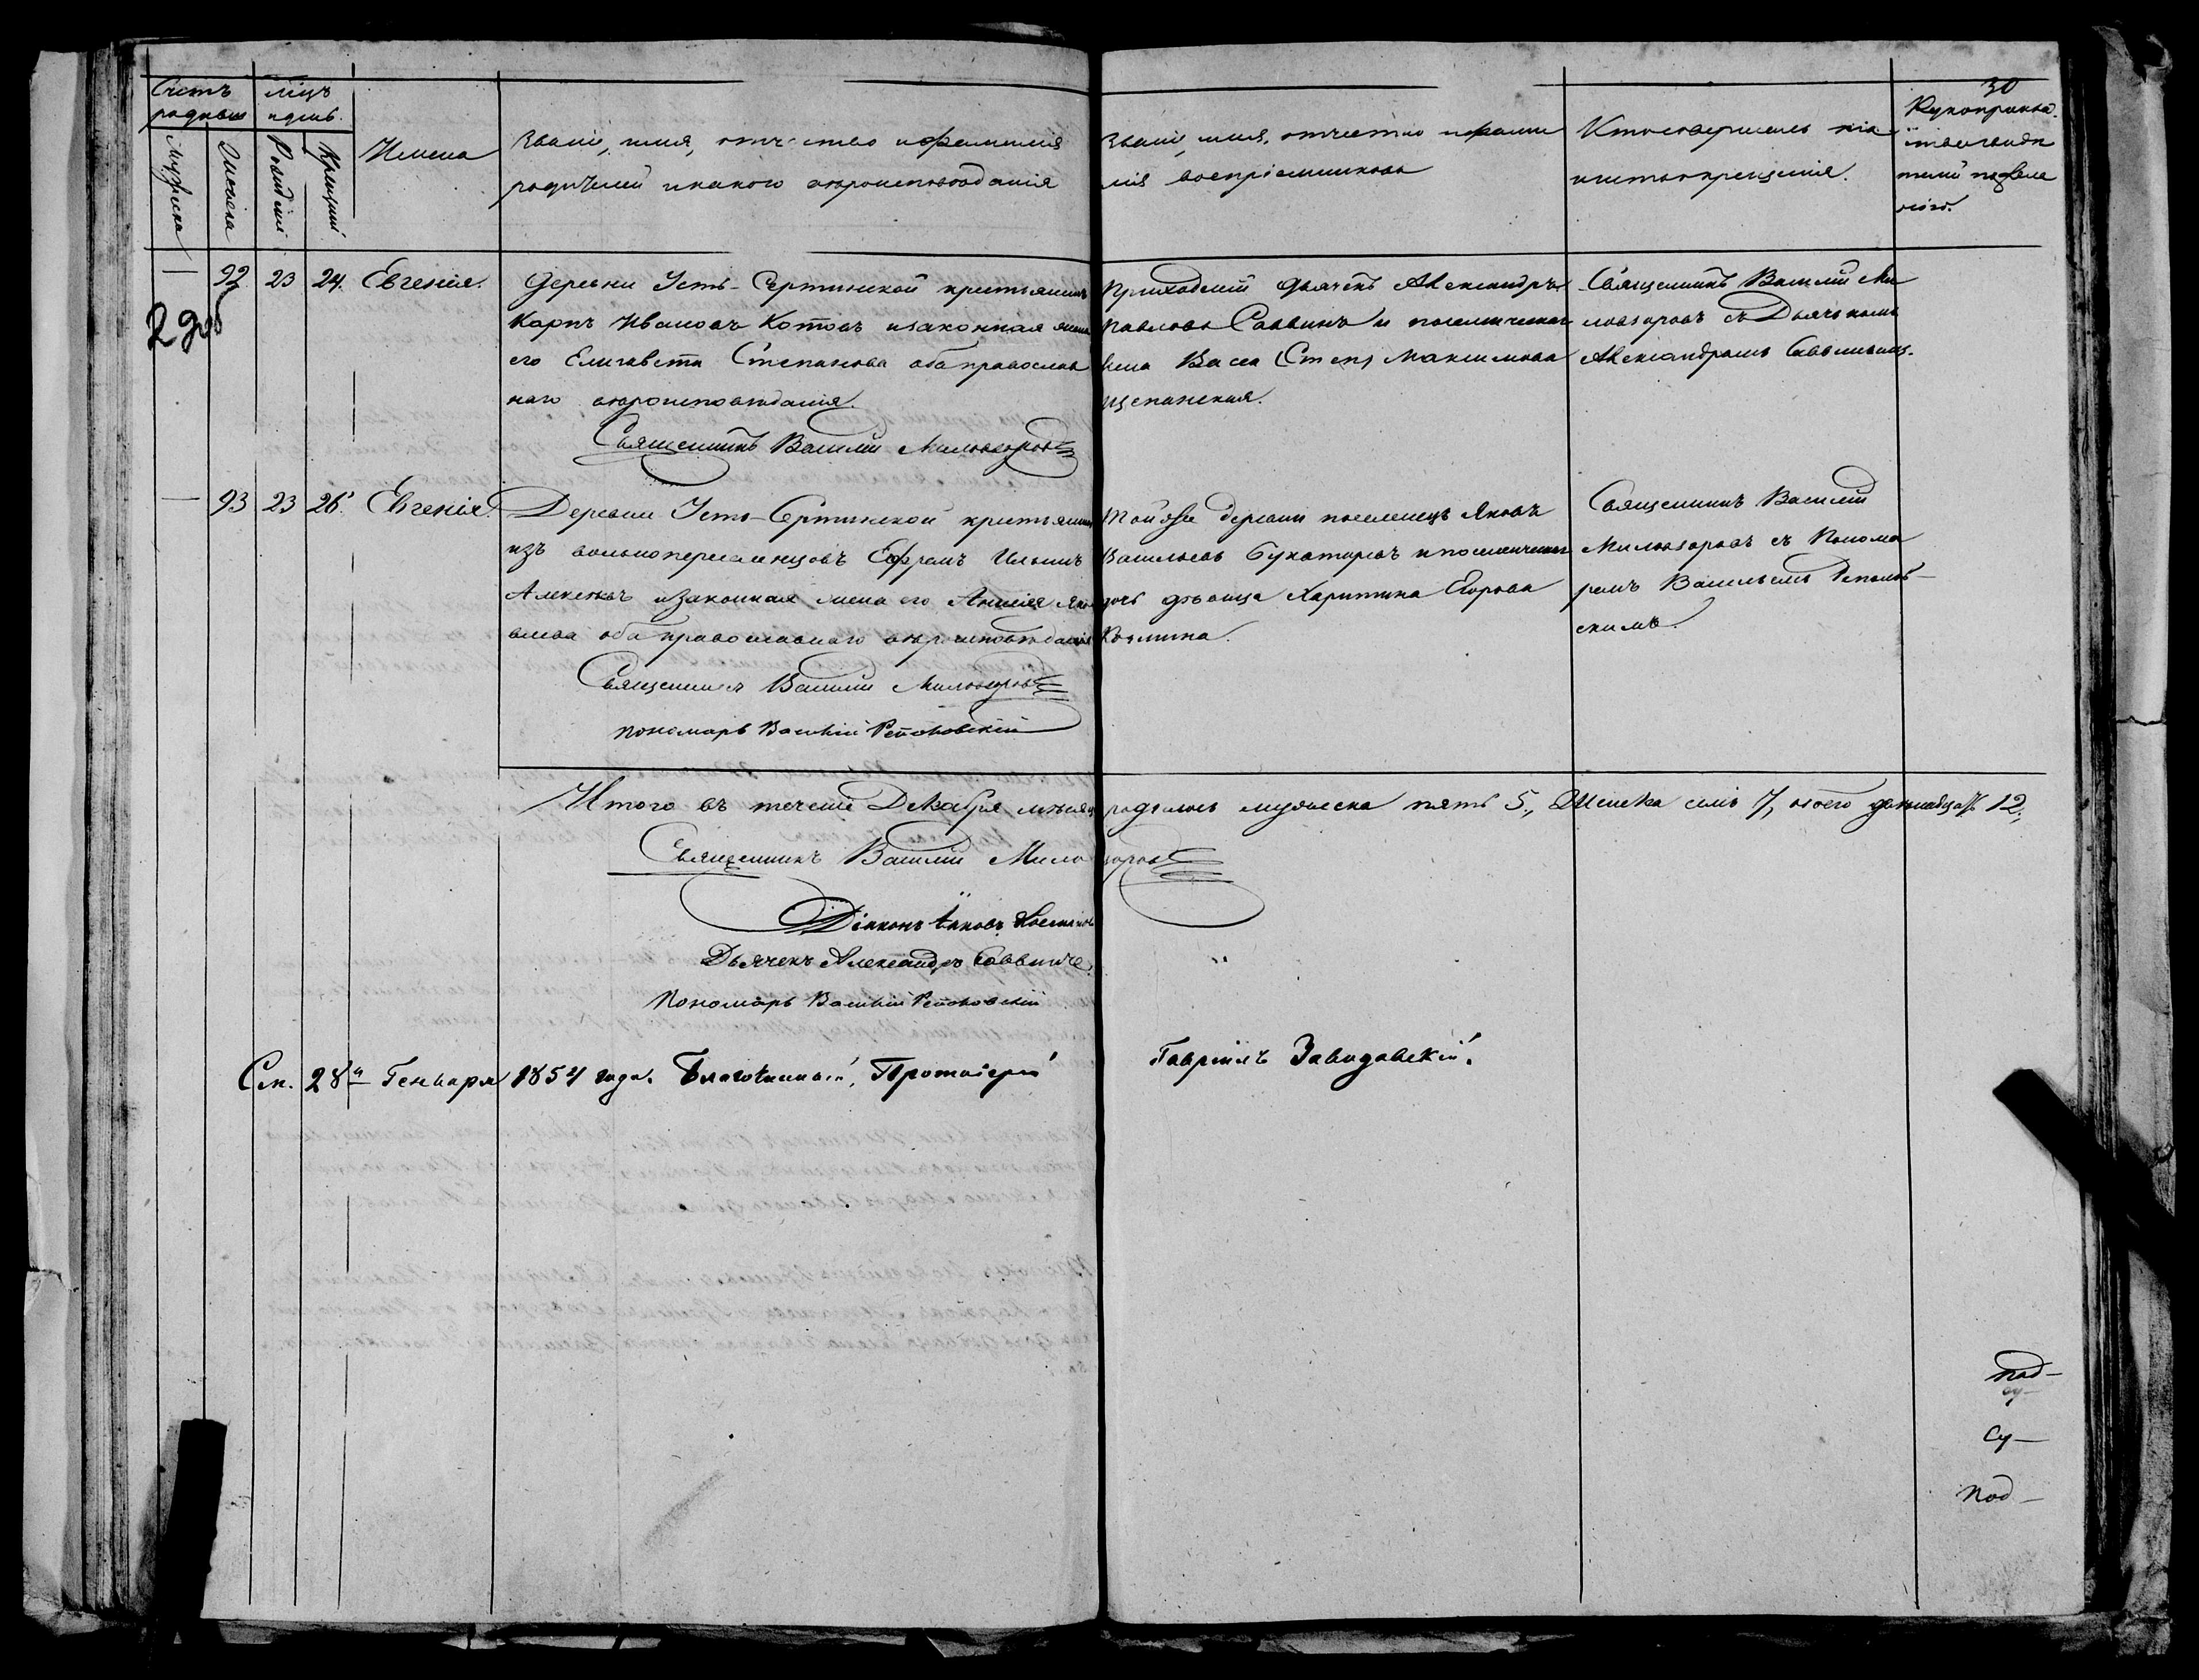 30
Счетъ родившихся
Мѣсяцъ и день.
Мужска
Женска
Рожденія
Крещенія
Имена
Званіе, имя, отчество и фамилія
родителей и какого вѣроисповѣданія
Званіе, имя, отчество и фами
лія воспріемниковъ
Кто совершалъ та
инство крещенія.
Рукоприклад
ство свидѣ
телей по жела
нію.
— 92 23 24. Евгенія.
Деревни Усть-Сертинской крестьянинъ
Карпъ Ивановъ Котовъ и законная жена
его Елизавета Степанова оба православ
наго вѣроисповѣданія.
Священникъ Василій Миловзоровъ
Приходскій дьячекъ Александръ
Павловъ Саввинъ и поселенческая
жена Васса (Степ) Максимова
Щепанская.
Священникъ Василій Ми
ловзоровъ съ Дьячькомъ
Александромъ Саввиныы.
2 доб
— 93 23 26. Евгенія.
Деревни Усть-Сертинской крестьянинъ
изъ вольнопереселенцовъ Ефремъ Ильинъ
Алексѣевъ и законная жена его Анисія Яко
влева оба православнаго вѣроисповѣданія
Священникъ Василій Миловзоровъ
Пономарь Василій Реполовскій
Той же деревни поселенецъ Яковъ
Васильевъ Бухатировъ и поселенческая
дочь дѣвица Харитина Егорова
Кузмина.
Священникъ Василій
Миловзоровъ съ Понома
ремъ Васильемъ Реполов-
скимъ.
Итого въ теченіе Декабря мѣсяца родилось мужеска пять 5., Женска семь 7, обоего двѣнадцать 12.
Священникъ Василій Миловзоровъ
Діаконъ Іаковъ
Дьячекъ Александръ Саввинъ
Пономарь Василій Реполовскій
См. 28го Генваря 1854 года. Благочинный, Протоіерей Гавріилъ Завадовскій.
под—
су—
су—
под—